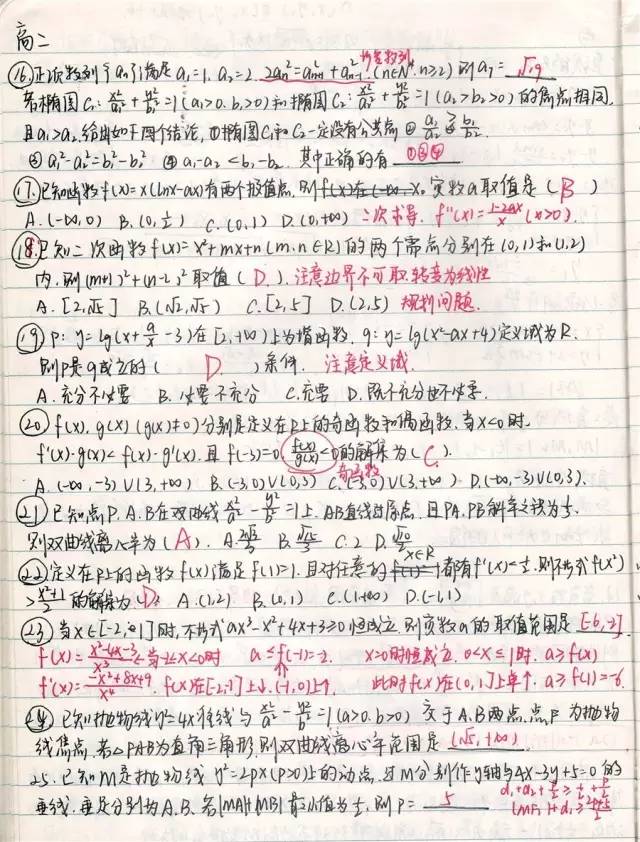 高二
⑯正项数列{an}满足a₁=1, a₂=2, 2an²=an+1²+an-1² (n∈N*, n≥2) 则a₇= √19
等差数列
若椭圆C₁: x²/a₁²+y²/b₁²=1(a₁>0.b₁>0)和椭圆C₂: x²/a₂²+y²/b₂²=1(a₂>b₂>0)的焦点相同
且a₁>a₂. 给出如下四个结论, ①椭圆C₁和C₂一定没有公共点 ② a₁/a₂ > b₁/b₂
③ a₁²-a₂²=b₁²-b₂² ④ a₁-a₂<b₁-b₂. 其中正确的有 ①③④
⑰已知函数f(x)=x(lnx-ax)有两个极值点, 则 实数a取值是 ( B )
A.(-∞,0) B.(0,½) C.(0,1) D.(0,+∞) 二次求导. f''(x)=(1-2ax)/x (x>0).
⑱已知二次函数f(x)=x²+mx+n(m,n∈R)的两个零点分别在(0,1)和(1,2)
内, 则(m+1)²+(n-2)²取值 ( D ). 注意边界不可取 转变为线性
A.[2,√5] B.(√2,√5) C.[2,5] D.(2,5) 规划问题.
⑲ p: y=lg(x+a/x-3)在[2,+∞)上为增函数, q: y=lg(x²-ax+4)定义域为R.
则p是q成立的 ( D ) 条件. 注意定义域.
A.充分不必要 B.必要不充分 C.充要 D.既不充分也不必要.
⑳ f(x), g(x) (g(x)≠0)分别是定义在R上的奇函数和偶函数, 当x<0时,
f'(x)·g(x)<f(x)·g'(x), 且f(-3)=0, f(x)/g(x)<0的解集为 ( C ).
奇函数
A.(-∞,-3)∪(3,+∞) B.(-3,0)∪(0,3) C.(-3,0)∪(3,+∞) D.(-∞,-3)∪(0,3).
㉑已知点P.A.B在双曲线x²/a²-y²/b²=1上, AB直线过原点, 且PA.PB斜率之积为⅓,
则双曲线离心率为 ( A ). A. 2√3/3 B. √15/3 C. 2 D. √10/2
㉒定义在R上的函数f(x)满足f(1)=1, 且对任意的x∈R都有f'(x)<½, 则不等式f(x²)
>(x²+1)/2的解集为 D. A.(1,2) B.(0,1) C.(1,+∞) D.(-1,1)
㉓当x∈[-2,1]时, 不等式ax³-x²+4x+3≥0恒成立, 则实数a的取值范围是 [-6,-2]
f(x)=(x²-4x-3)/x³ 当-2≤x<0时 a≤f(-1)=-2. x=0时恒成立. 0<x≤1时. a≥f(x)
f'(x)=(-x²+8x+9)/x⁴. f(x)在[-2,-1]上↓, (-1,0)上↑, 此时f(x)在(0,1]上单↑. a≥f(1)=-6.
㉔已知抛物线y²=4x准线与x²/a²-y²/b²=1(a>0.b>0) 交于A.B两点, 点F为抛物
线焦点, 若△FAB为直角三角形, 则双曲线离心率范围是 (√5,+∞)
25. 已知M是抛物线y²=2px(p>0)上的动点, 过M分别作y轴与4x-3y+5=0的
垂线, 垂足分别为A.B. 若|MA|+|MB|最小值为½, 则p= 5
d₁+d₂+p/2≥½+p/2
|MF|+d₂≥(2p+5)/5